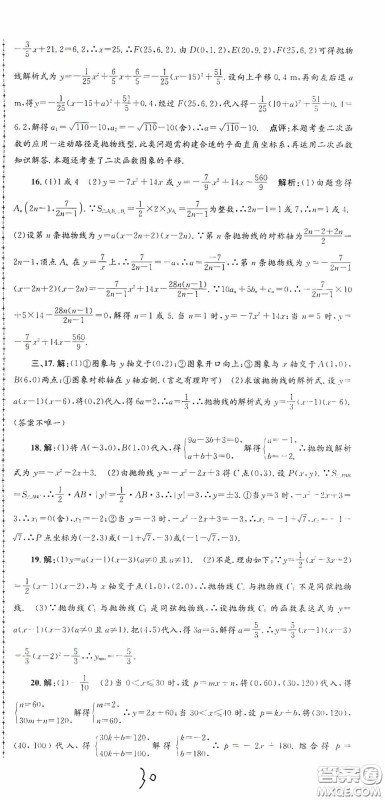 -3/5x+21.2=6.2,∴x=25.∴F(25,6.2). 由 D(0,1.2),E(20,9.2),F(25,6.2)可得抛物
线解析式为 y=-1/25x²+6/5x+6/5=-1/25(x-15)²+51/5. 设向上平移 0.4 m,再向左后退 a
m,得 y=-1/25(x-15+a)²+51/5+0.4,经过 F(25,6.2),代入得-1/25(10+a)²+51/5+0.4=
6.2,解得 a₁=√110-10,a₂=-√110-10(舍),∴a=√110-10. 点评:本题考查二次函
数的应用—运动路径是抛物线型,此类问题需构建合适的平面直角坐标系,再运用二次函数
知识解答.本题还考查了二次函数图象的平移.
16.(1)1 或 4 (2)y=-7x²+14x 或 y=-7/9x²+14x-560/9 解析:(1)由题意得
(2)设第 n 条抛物线为 y=a(x-2n+2)(x-2n). ∵第 n 条抛物线的对称轴为(2n-2+2n)/2=
2n-1,顶点 Aₙ 在 y=7/x 上,∴7/(2n-1)=-a,∴a=-7/(2n-1). ∴第 n 条抛物线为 y=-7/(2n-1)
(x-2n+2)(x-2n)=-7/(2n-1)x²+14x-28n(n-1)/(2n-1). ∵10aₙ+5bₙ+cₙ=0,∴-7/(2n-1)×10
+5×14-28n(n-1)/(2n-1)=0,解得 n=1 或 5. 当 n=1 时,y=-7x²+14x;当 n=5 时,y=
-7/9x²+14x-560/9.
三、17.解:(1)①图象与 y 轴交于(0,2);②图象开口向上;③图象与 x 轴交于 A(1,0),
B(6,0)两点;④图象对称轴在 y 轴右侧.(言之有理即可) (2)求该抛物线的解析式.设 y
=a(x-1)(x-6),将(0,2)代入,得 6a=2,∴a=1/3,∴抛物线的解析式为 y=1/3(x-1)(x-6)
(答案不唯一)
18.解:(1)将 A(-3,0),B(1,0)代入,得{9a-3b+3=0, a+b+3=0. 解得{a=-1, b=-2. ∴抛物线解析
式为 y=-x²-2x+3. (2)由抛物线 y=-x²-2x+3 得 C 点(0,3). 设 P(x,y). ∵S△PAB
=S△ABC,∴1/2·AB·|y|=1/2·AB·3,∴|y|=3,∴y=±3,∴①当 y=3 时,-x²-2x+3=
3,∴x₁=0(舍),x₂=-2;②当 y=-3 时,-x²-2x+3=-3,∴x₁=-1+√7,x₂=-1-√7,
∴点 P 坐标为(-2,3)或(-1+√7,-3)或(-1-√7,-3).
19.解:(1)y=a(x-1)(x-3)(a≠0 且 a≠1). (2)不是.理由如下:∵y=1/2(x²-3x+2)
=1/2(x-1)(x-2),与 x 轴交于点(1,0),(2,0),∴抛物线 C₁ 与抛物线 C₂ 不是同弦抛物
线. (3)∵抛物线 C₁ 与抛物线 C₃ 是同弦抛物线,∴设抛物线 C₃ 的函数表达式为 y=
a(x-1)(x-3)(a≠0 且 a≠1). 把(4,5)代入,得 3a=5,解得 a=5/3,∴y=5/3(x-1)(x-3)=
20.解:(1)-1/10 (2)当 0<x≤30 时,设 p=mx+n,将(0,60),(30,120)代入,得
{n=60, 30m+n=120. 解得{m=2, n=60. ∴y=2x+60;当 30<x≤40 时,设 p=kx+b,将(30,120),
(40,100)代入,得{30k+b=120, 40k+b=100. 解得{k=-2, b=180. ∴p=-2x+180. 综合得 p=
30